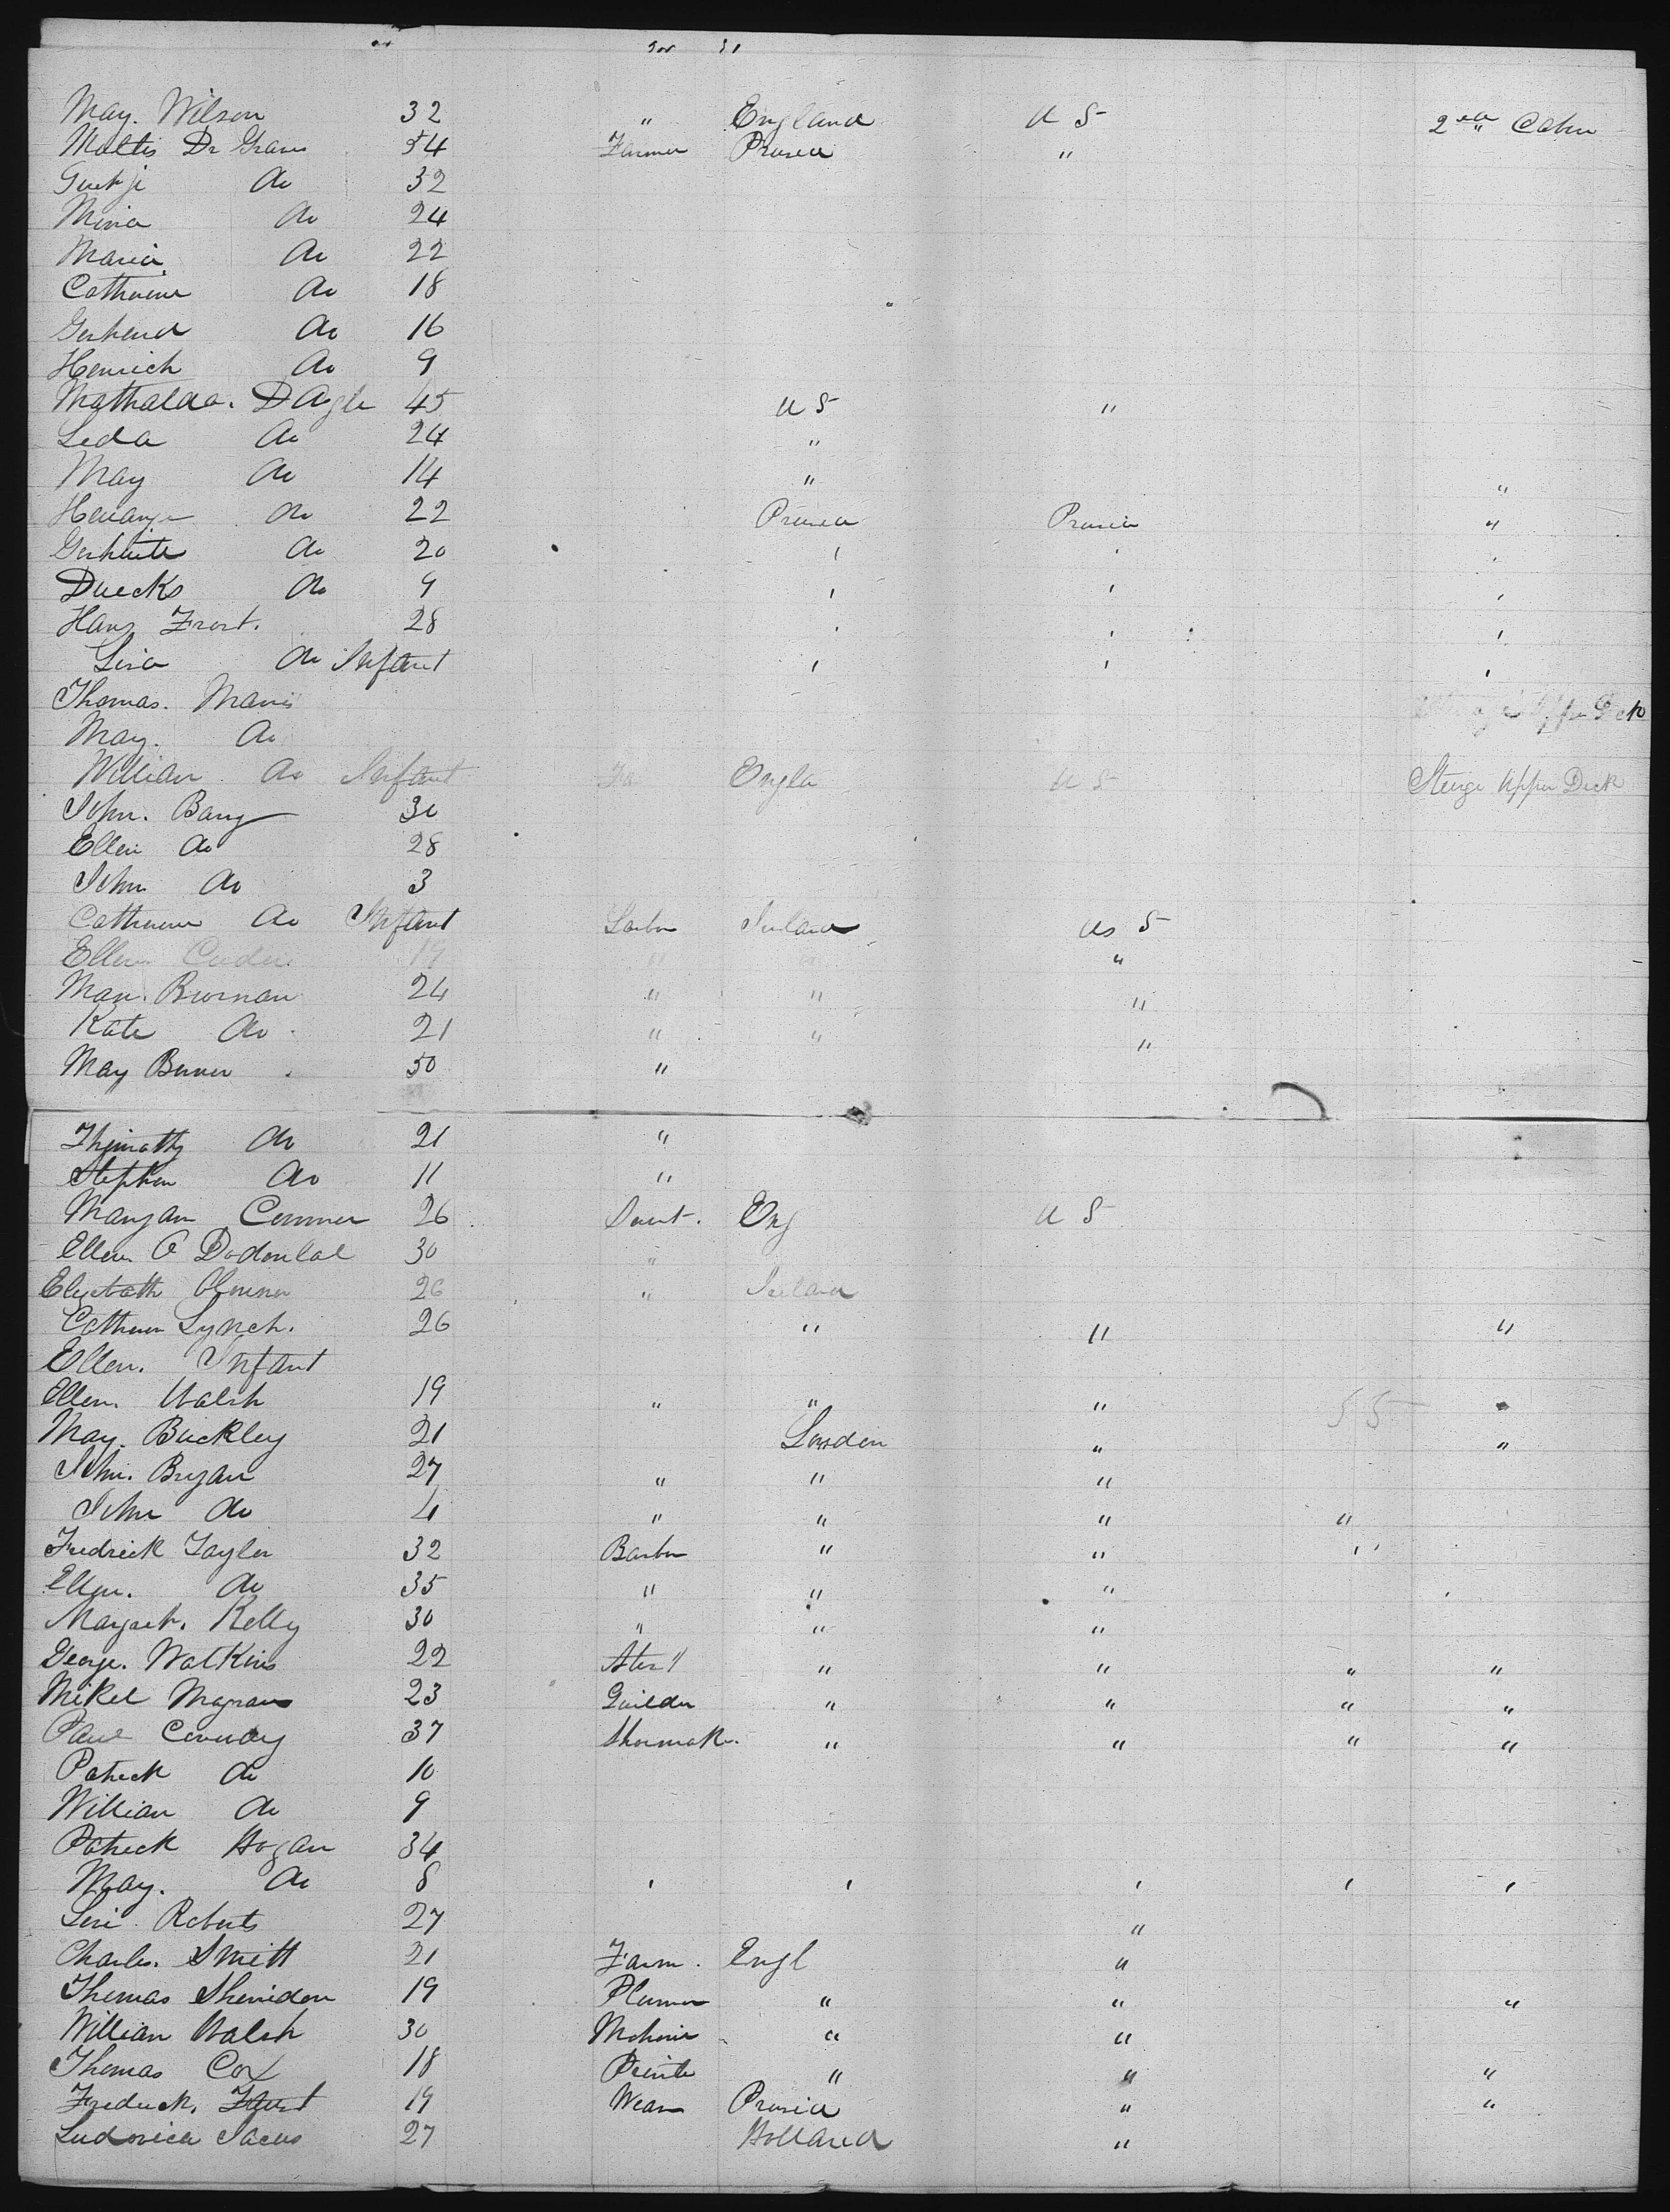 May. Wilson 32 " England U S 2nd Cabin
Moltis De Graus 54 Farmer Prusia "
do 32
Mina do 24
Maria do 22
Catherine do 18
Gerherd do 16
Henrich do 9
Mathalda. D Agle 45 U S "
Leda do 24 "
May do 14 " "
do 22 Prusia Prusia "
do 20
Duecks do 9
Hans Frost. 28
Lisa do Infant
Thomas. Maris Upper Deck
May. do
William do Infant Fa Engla U S Sterge Upper Deck
John. Barry 30
Ellen do 28
John do 3
Catherine do Infant Labor Ireland U S
Ellen 19 " " "
Man. Brosnan 24 " " "
Kate do 21 " " "
May 50 "
Thimothy do 21 "
Stephen do 11 "
Mangan Connner 26 Servt. Eng U S
Ellen O Dodonlal 30 "
Elyzbath OConnor 26 " Ireland
Catheren Lynch. 26 " " "
Ellen. Infant
Ellen. Walsh 19 " " " S S "
May. Buckley 21 London " "
John. Bryan 27 " " "
John do 4 " " " "
Fredrick Taylor 32 Barber " " "
Ellen. do 35 " " "
Margret. Kelly 30 " " "
George. Watkins 22 " " " "
Mikel Magraus 23 Guilder " " " "
Paul Conway 37 Shoemaker. " " " "
Patrick do 10
William do 9
Patrick Hogan 34
May. do 8
Levi Roberts 27 "
Charles. Smitt 21 Farm. Engl "
Thomas Sheridon 19 Plumer " " "
William Walsh 30 " "
Thomas Cox 18 Printe " " "
Fredrick. 19 Weav Prusia " "
Ludovica Jacus 27 Holland "